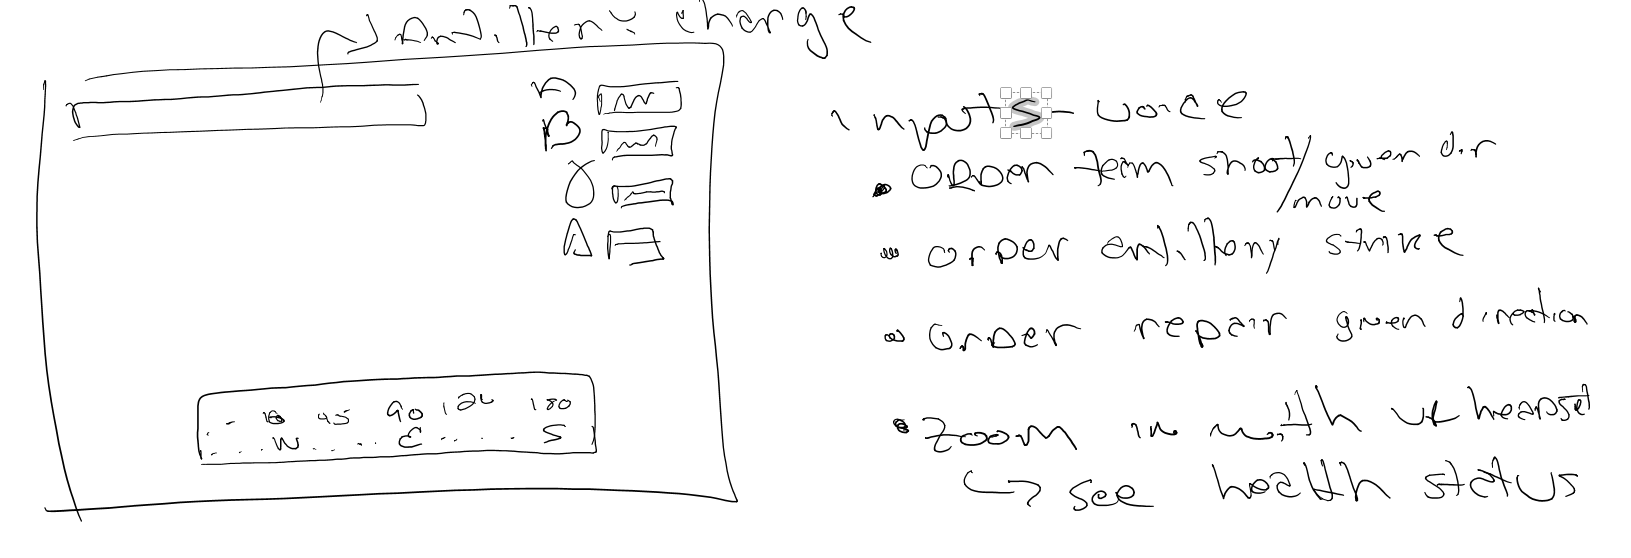 Artillery charge
A
B
γ
Δ
0 45 90 120 180
N . . . E . . . . . S
inputs - voice
• ORDER team shoot/given dir
/move
• ORDER artillery strike
• order repair given direction
• zoom in with vr headset
↳ see health status